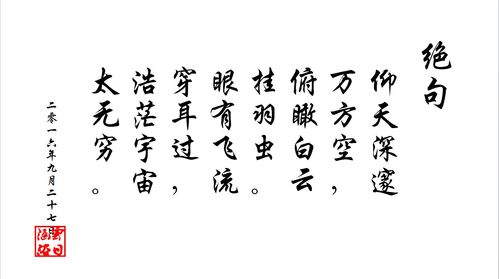 绝句
仰天深邃
万方空，
俯瞰白云
挂羽虫。
眼有飞流
穿耳过，
浩茫宇宙
太无穷。
二零一六年九月二十七日